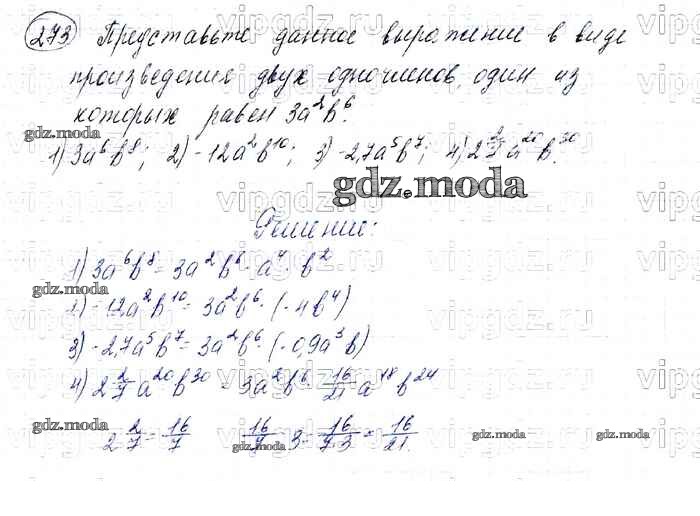 273 Представьте данное выражение в виде
произведения двух одночленов, один из
которых равен 3a²b⁶.
gdz.moda
1) 3a⁶b⁸; 2) -12a²b¹⁰; 3) -2,7a⁵b⁷; 4) 2 2/7 a²⁰b³⁰.
gdz.moda
Решение:
1) 3a⁶b⁸ = 3a²b⁶ · a⁴ · b²
gdz.moda
2) -12a²b¹⁰ = 3a²b⁶ · (-4b⁴)
3) -2,7a⁵b⁷ = 3a²b⁶ · (-0,9a³b)
4) 2 2/7 a²⁰b³⁰ = 3a²b⁶ · 16/21 a¹⁸b²⁴
2 2/7 = 16/7 16/7 : 3 = 16/7·3 = 16/21.
gdz.moda gdz.moda gdz.moda gdz.moda
vipgdz.ru